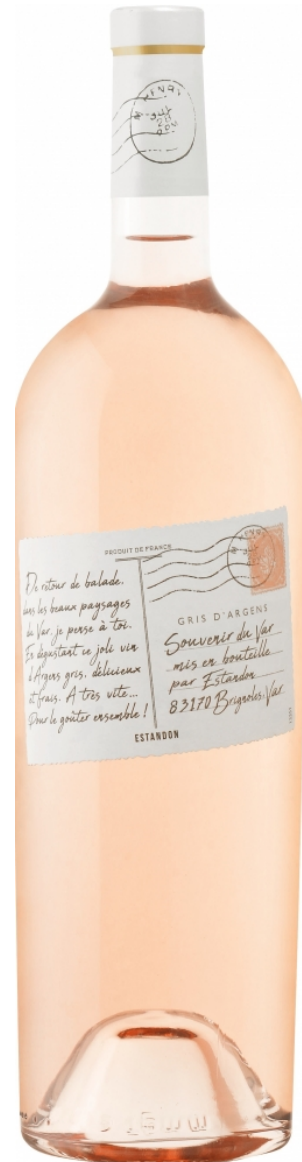 PRODUIT DE FRANCE
De retour de balade,
dans les beaux paysages
du Var, je pense à toi.
En dégustant ce joli vin
d'Argens gris, délicieux
et frais. A très vite...
Pour le goûter ensemble !
GRIS D'ARGENS
Souvenir du Var
mis en bouteille
par Estandon
83170 Brignoles. Var.
ESTANDON